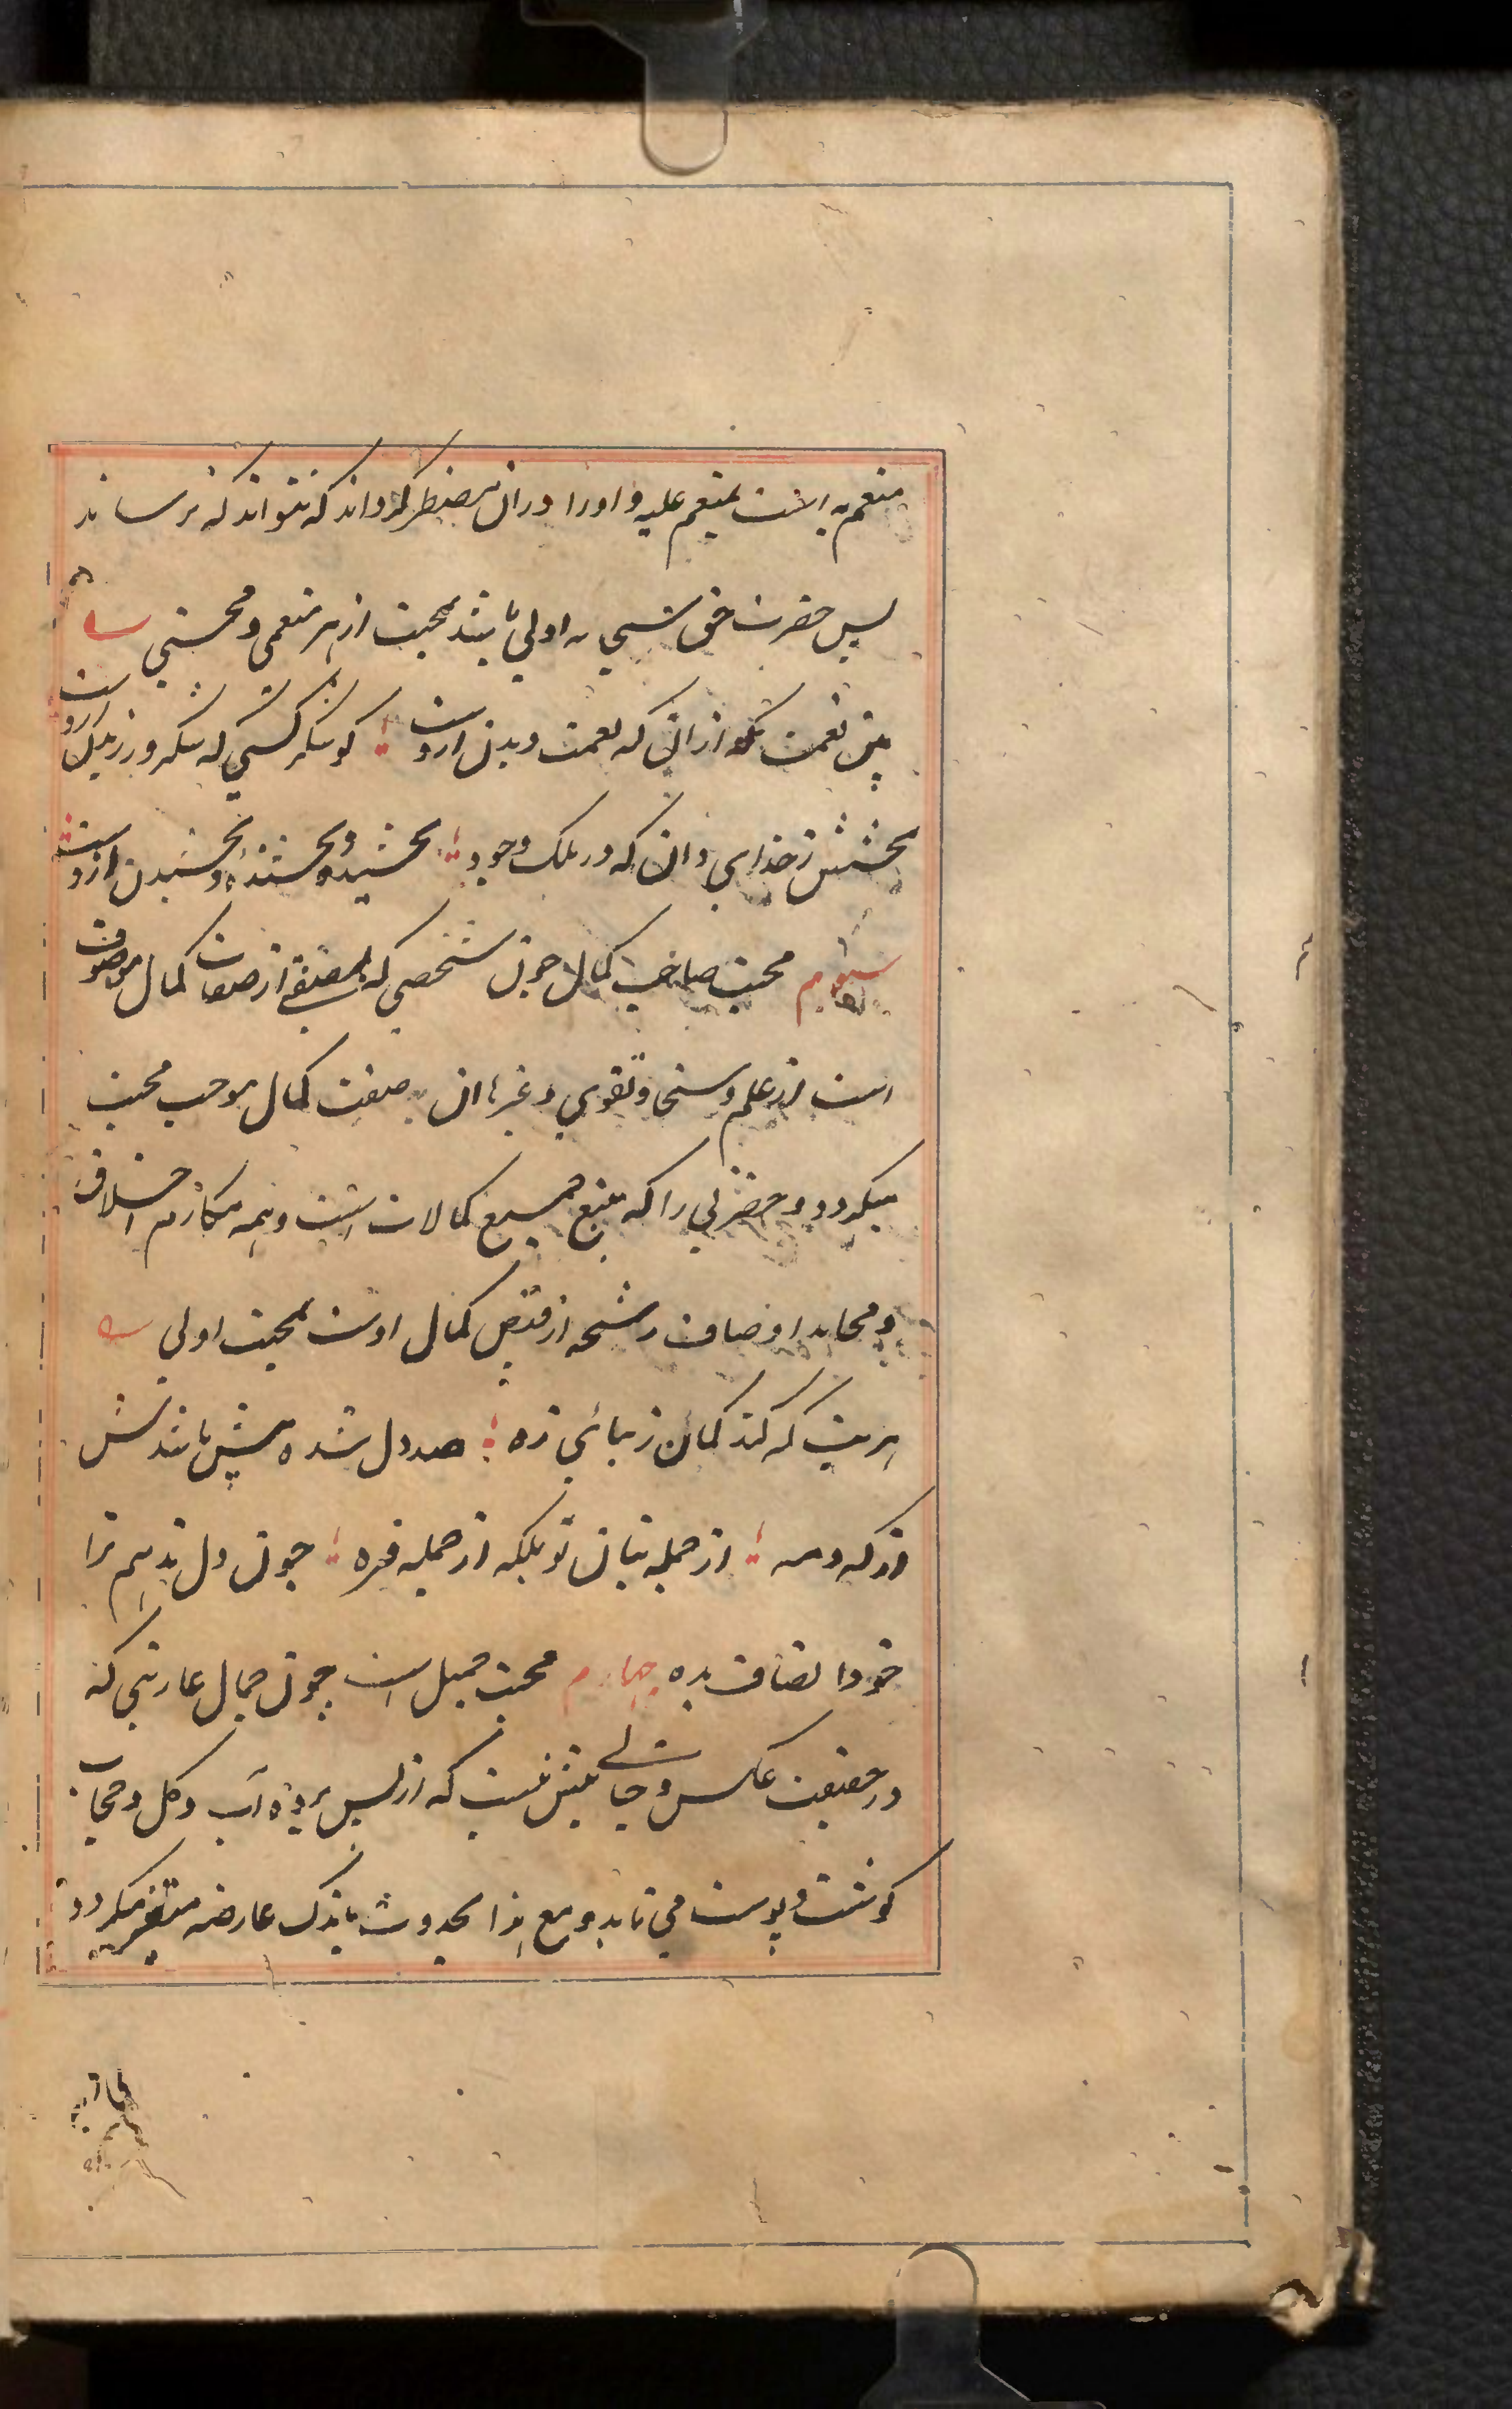 منعم به است بمنعم علیه و او را در ان مضطر کرداند که نتواند که نرساند
پس حضرت حق سبحانه اولی باشد بمحبت از هر منعمی و محسنی
نعمت از ان که نعمت دیدن ازوست کو شکر کسی که شکر ورزیدن ازوست
بخشش ز خدای دان که در ملک وجود بخشیده و بخشنده و بخشیدن ازوست
سیوم محبت صاحب کمال چون شخصی که بصفتی از صفات کمال موصوف
است از علم و سخا و تقوی و غیرها ان صفت کمال موجب محبت
میکردد و حضرتی را که منبع جمیع کمالات است و همه مکارم اخلاق
و محامد اوصاف رشحه از فیض کمال اوست بمحبت اولی
هر بت که کند کمان زیبائی زه صد دل شده بیش باشدش
از که و مه از جمله بتان تو بلکه از جمله فره چون دل ندهم ترا
خود انصاف بده چهارم محبت جمیل است چون جمال عاریتی که
در حقیقت عکس و خیالی بیش نیست که از پس پرده آب و کل و حجاب
کوشت و پوست می تابد و مع هذا بحدوث باندک عارضه متغیر میکردد